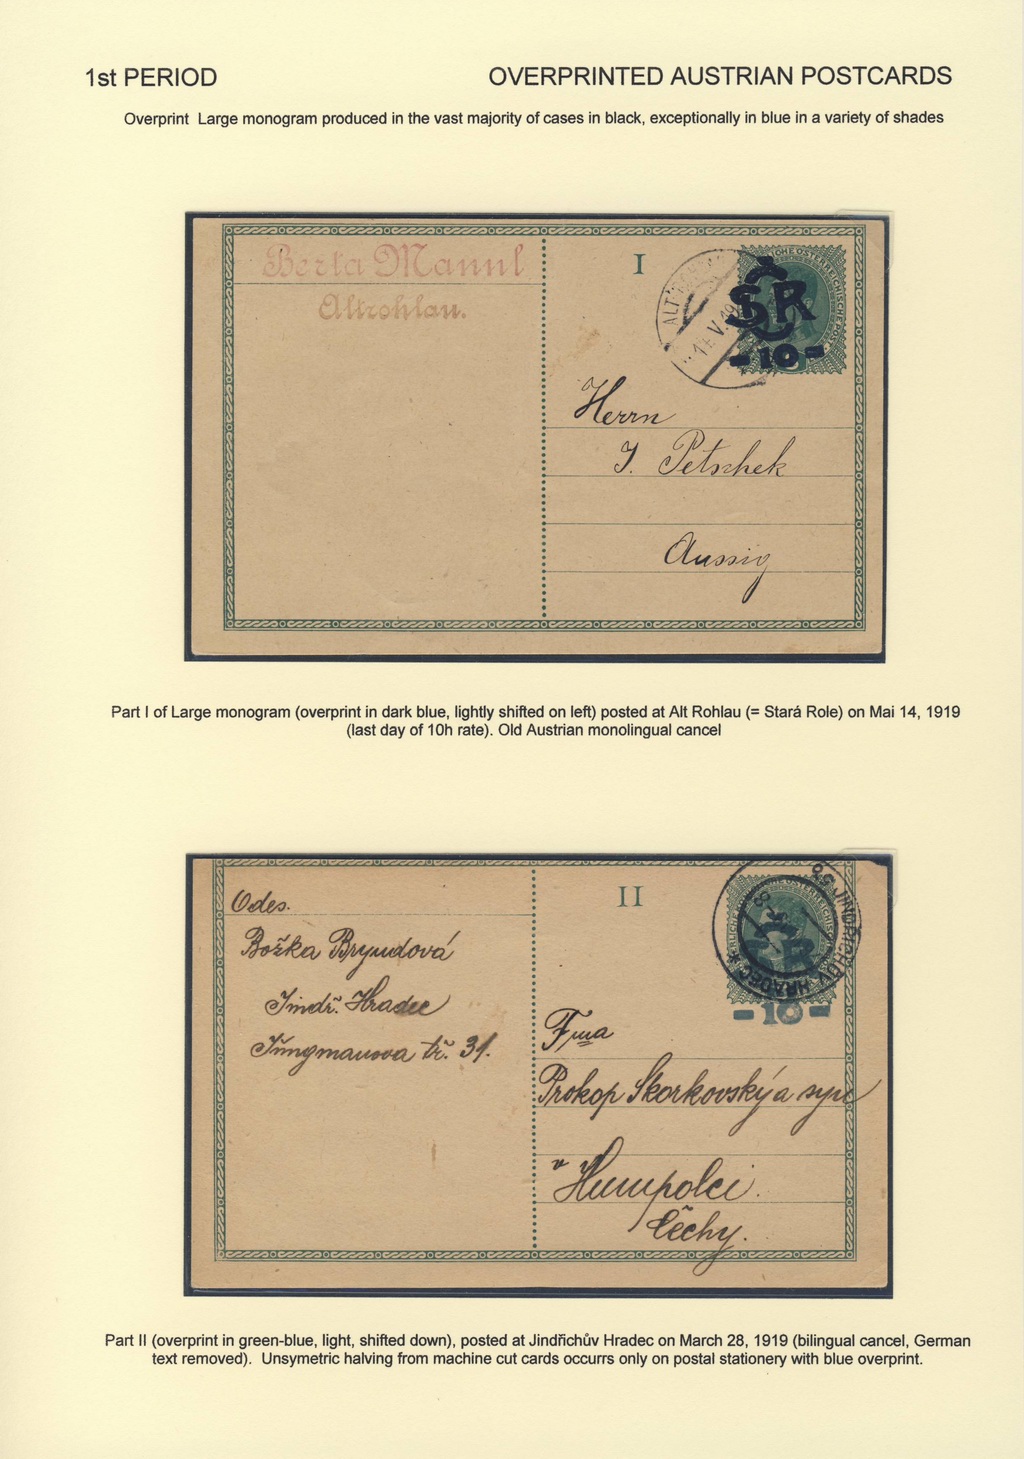 1st PERIOD
OVERPRINTED AUSTRIAN POSTCARDS
Overprint Large monogram produced in the vast majority of cases in black, exceptionally in blue in a variety of shades
Berta Manul
Altrohlau.
I
ČSR
-10-
Herrn
J. Petschek
Aussig
Part I of Large monogram (overprint in dark blue, lightly shifted on left) posted at Alt Rohlau (= Stará Role) on Mai 14, 1919
(last day of 10h rate). Old Austrian monolingual cancel
Odes.
Božka Bryndová
Jindř. Hradec
Jungmanova tř. 31.
II
JINDŘICHŮV HRADEC *
-10-
Fma
Prokop Skorkovský a syn
v Humpolci.
Čechy.
Part II (overprint in green-blue, light, shifted down), posted at Jindřichův Hradec on March 28, 1919 (bilingual cancel, German
text removed). Unsymetric halving from machine cut cards occurrs only on postal stationery with blue overprint.